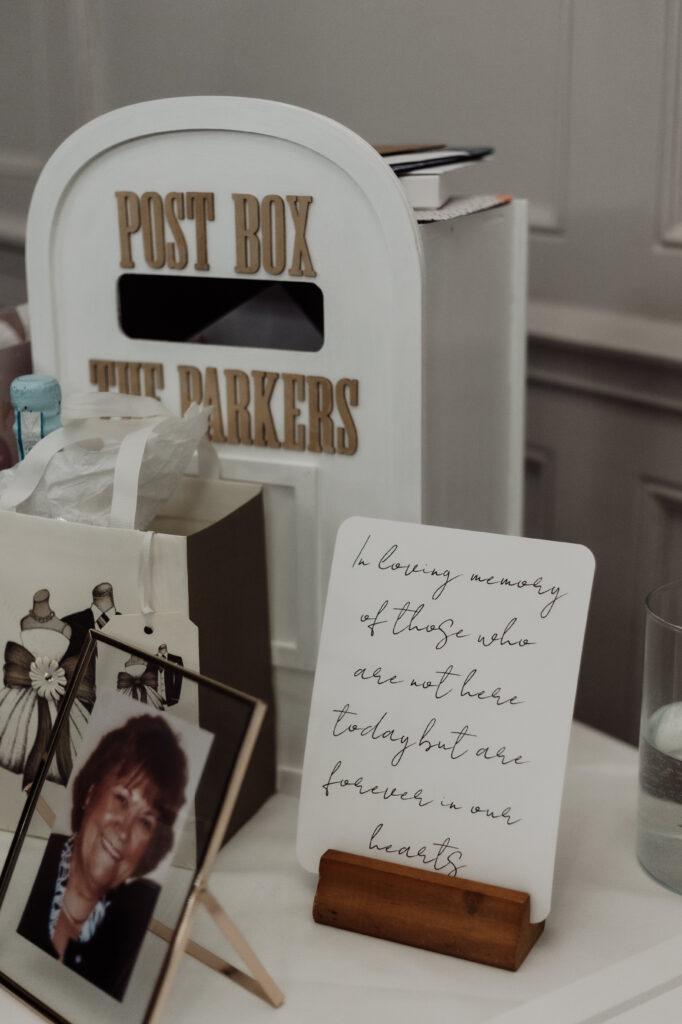 POST BOX
THE PARKERS
In loving memory
of those who
are not here
today but are
forever in our
hearts